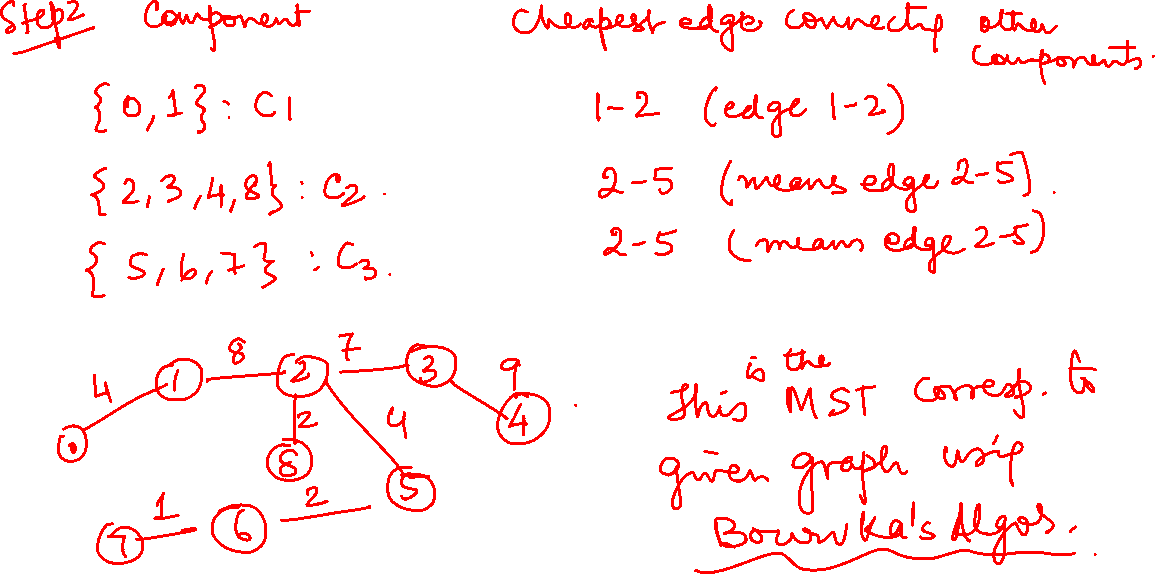 Step2 Component Cheapest edge connectig other
Components.
{0,1}: C1 1-2 (edge 1-2)
{2,3,4,8}: C2. 2-5 (means edge 2-5).
{5,6,7}: C3. 2-5 (means edge 2-5)
4 8 7 9
0 1 2 3 4
2 4
8 5
1 2
7 6
This is the MST corresp. to
given graph usig
Bourvka's Algos.